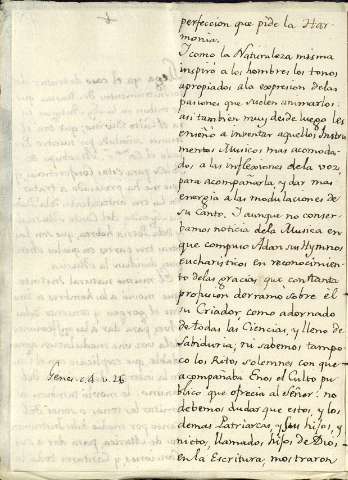 perfeccion que pide la Har-
monia.
I como la Naturaleza misma
inspiró a los hombres los tonos
apropiados ala expresion delas
pasiones que suelen animarlos:
asi tambien muy desde luego les
enseñó a inventar aquellos Instru-
mentos Musicos mas acomoda-
dos a las inflexiones dela voz,
para acompañarla, y dar mas
energia a las modulaciones de
su Canto. I aunque no conser-
vamos noticia dela Musica en
que compuso Adan sus Hymnos
eucharisticos en reconocimien-
to delas gracias, que con tanta
profusion derramo sobre el
su Criador, como adornado
de todas las Ciencias, y lleno de
Sabiduria; ni sabemos tampo-
co los Ritos solemnes con que
Genes. c. 4. v. 26
acompañaba Enos el Culto pu-
blico que ofrecia al Señor: no
debemos dudar que estos, y los
demas Patriarcas, y sus hijos, y
nietos, llamados hijos de Dios
en la Escritura, mostraron